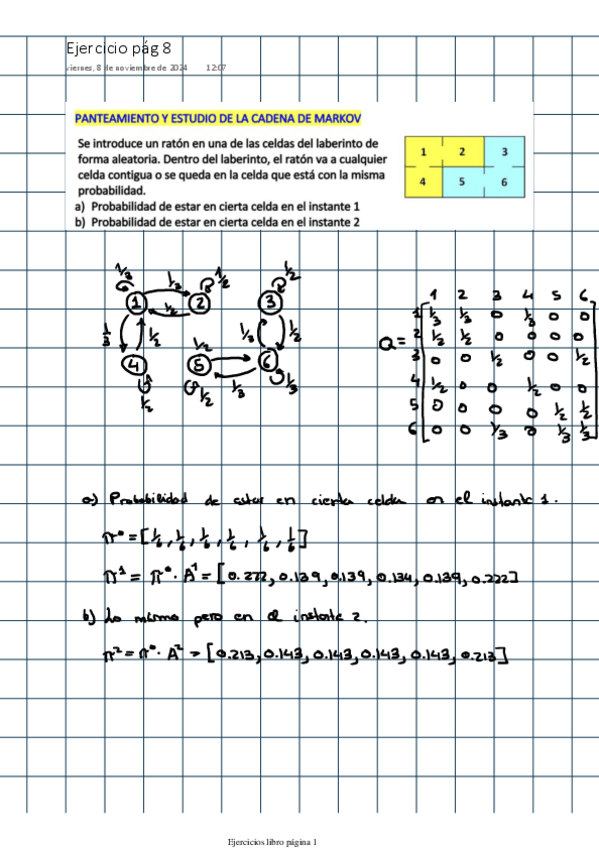 Ejercicio pág 8
viernes, 8 de noviembre de 2024 12:07
PANTEAMIENTO Y ESTUDIO DE LA CADENA DE MARKOV
Se introduce un ratón en una de las celdas del laberinto de
forma aleatoria. Dentro del laberinto, el ratón va a cualquier
celda contigua o se queda en la celda que está con la misma
probabilidad.
a) Probabilidad de estar en cierta celda en el instante 1
b) Probabilidad de estar en cierta celda en el instante 2
1 2 3
4 5 6
1/3 1/3 1/2 1/2
1 2 3
1/2
1/3 1/2 1/3 1/2
4 5 6
1/2
1/2 1/2 1/3 1/3
1 2 3 4 5 6
1 1/3 1/3 0 1/3 0 0
Q = 2 1/2 1/2 0 0 0 0
3 0 0 1/2 0 0 1/2
4 1/2 0 0 1/2 0 0
5 0 0 0 0 1/2 1/2
6 0 0 1/3 0 1/3 1/3
a) Probabilidad de estar en cierta celda en el instante 1.
π⁰ = [1/6, 1/6, 1/6, 1/6, 1/6, 1/6]
π¹ = π⁰ · A¹ = [0.222, 0.139, 0.139, 0.134, 0.139, 0.222]
b) Lo mismo pero en el instante 2.
π² = π⁰ · A² = [0.213, 0.143, 0.143, 0.143, 0.143, 0.213]
Ejercicios libro página 1